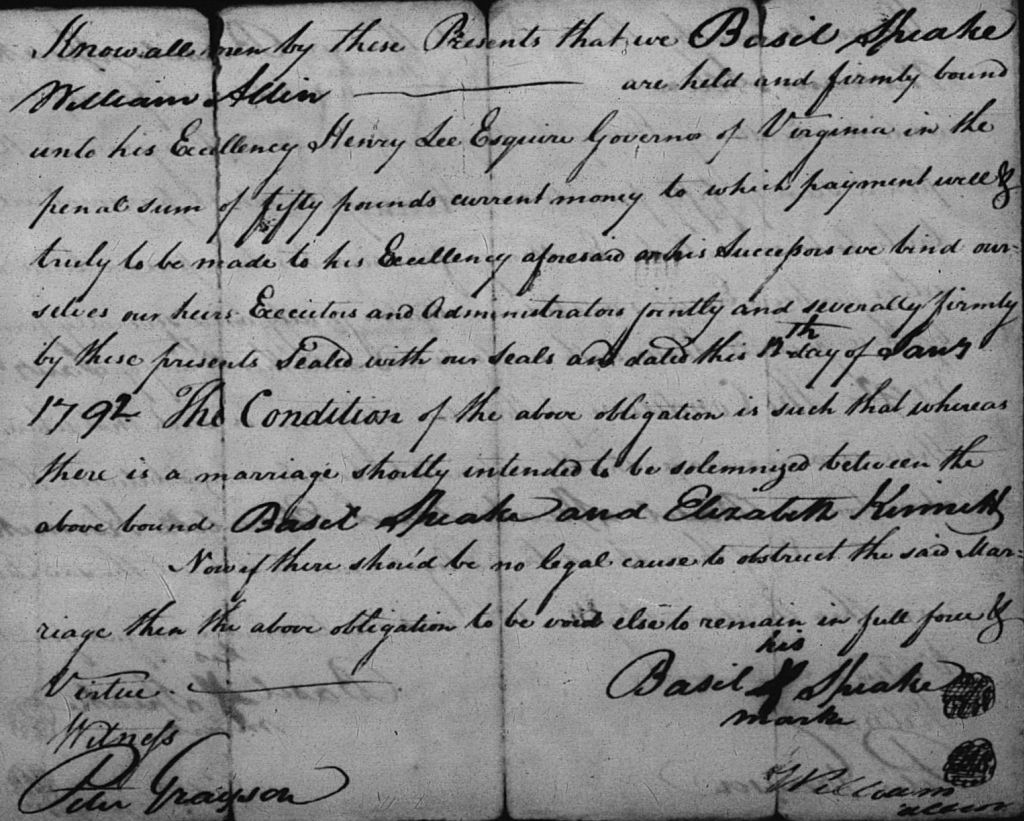 Know all men by these Presents that we Basil Speake
William Allin are held and firmly bound
unto his Excellency Henry Lee Esquire Governor of Virginia in the
penal sum of fifty pounds current money to which payment well &
truly to be made to his Excellency aforesaid or his Successors we bind our-
selves our heirs Executors and Administrators jointly and severally firmly
by these presents Sealed with our seals and dated this th day of Jany
1792 The Condition of the above obligation is such that whereas
there is a marriage shortly intended to be solemnized between the
above bound Basil Speake and Elizabeth
Now if there should be no legal cause to obstruct the said Mar-
riage then the above obligation to be void else to remain in full force &
Virtue.
his
Basil Speake
mark
Witness
Peter Grayson
William